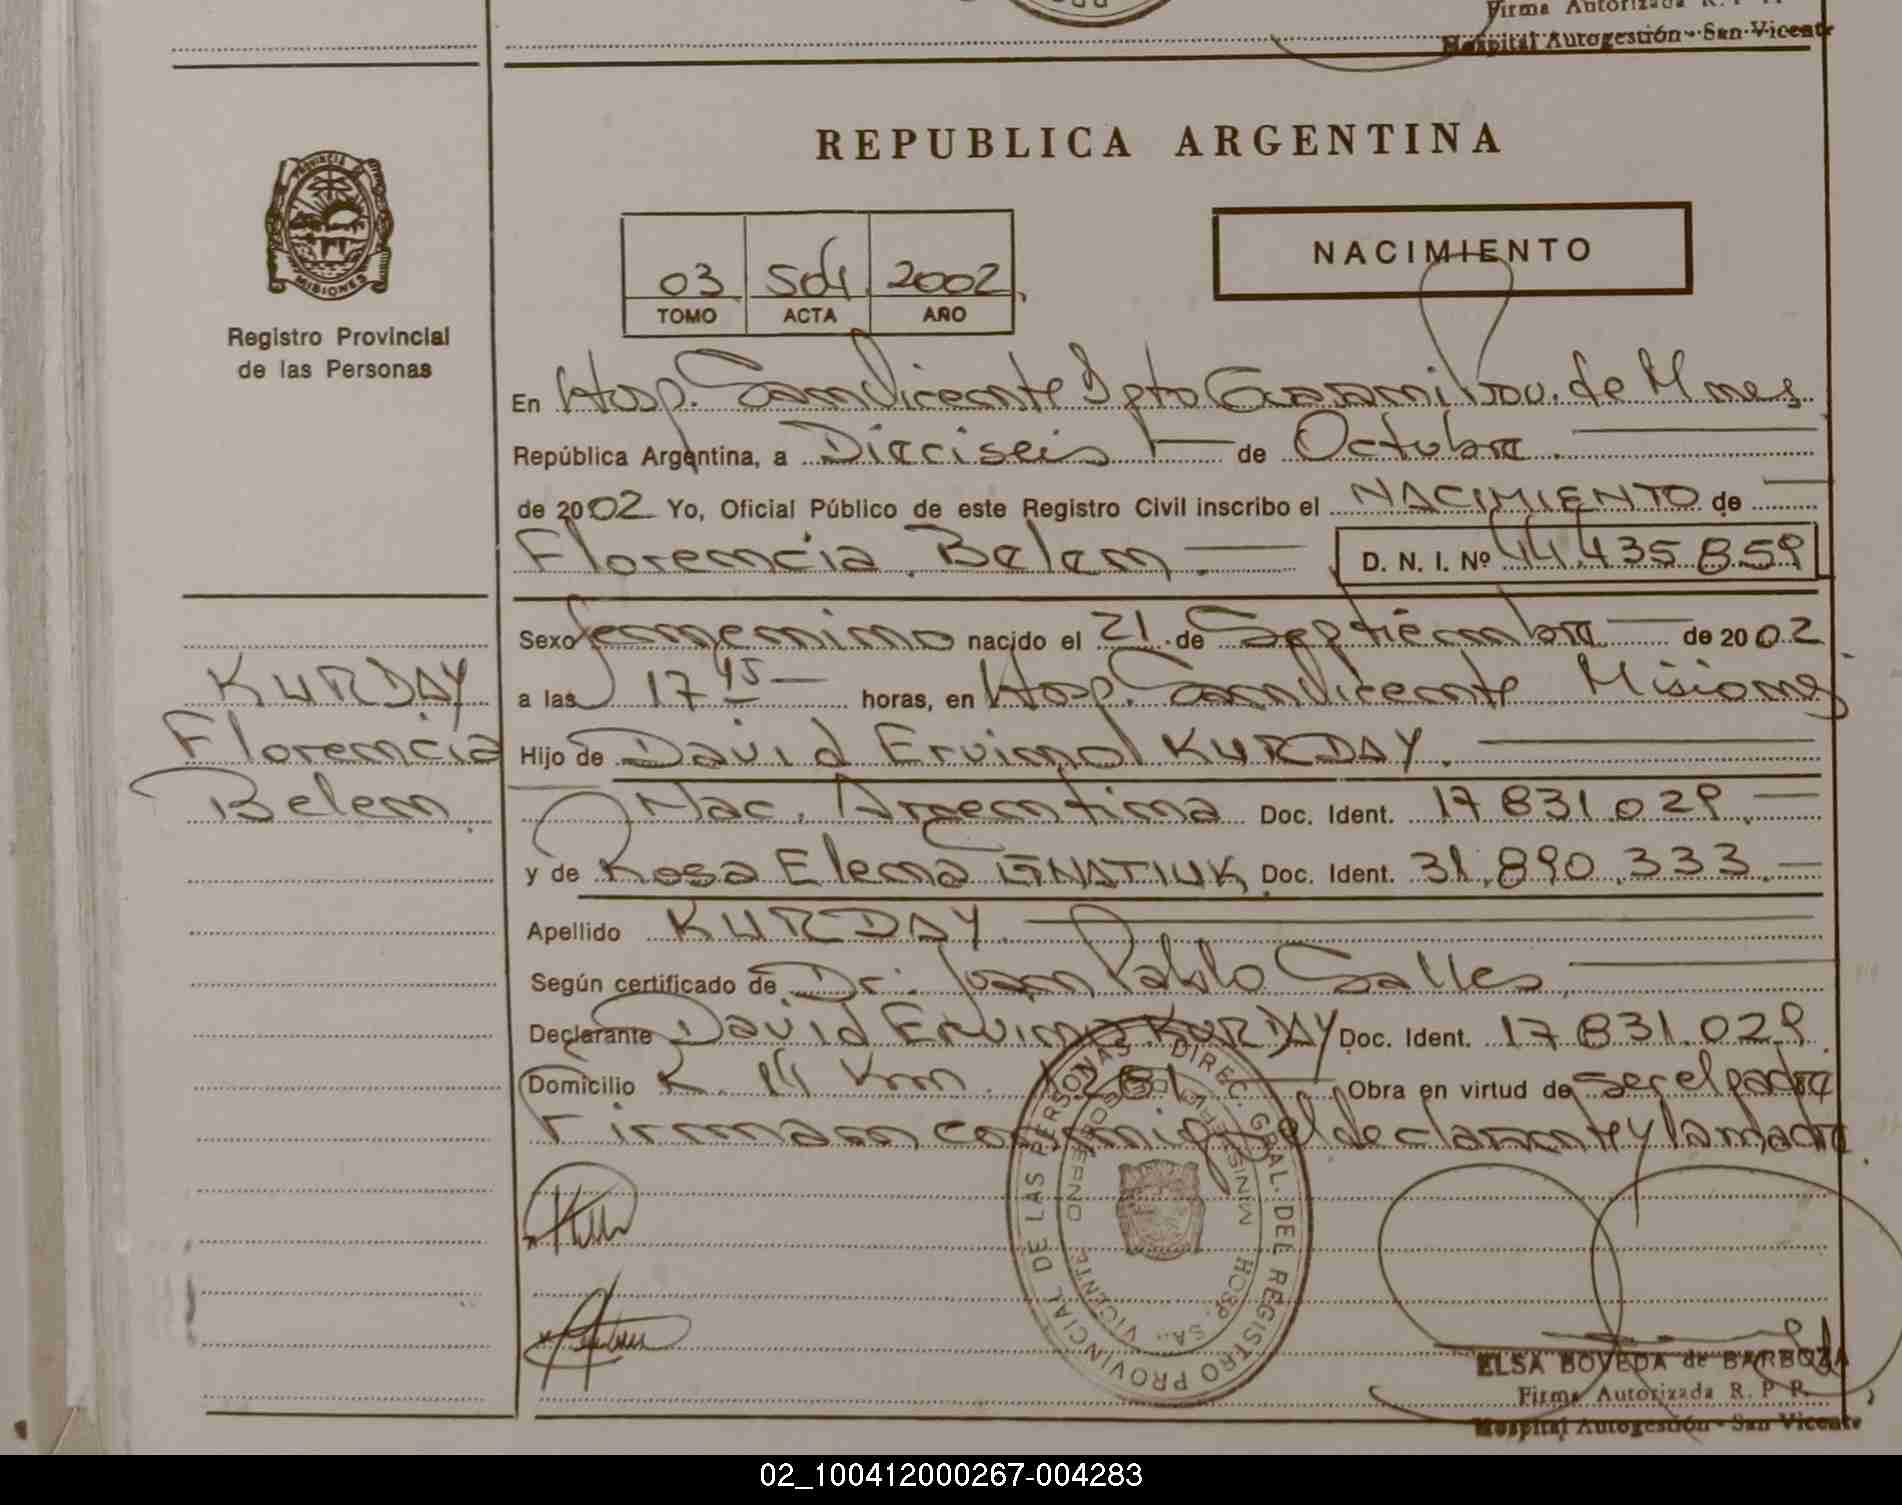 Firma Autorizada R. P. P.
Hospital Autogestión - San Vicente
REPUBLICA ARGENTINA
PROVINCIA DE MISIONES
Registro Provincial
de las Personas
03 504 2002
TOMO ACTA AÑO
NACIMIENTO
En Hosp. San Vicente Dpto Guarani Prov. de Mnes.
República Argentina, a Dieciseis de Octubre
de 2002 Yo, Oficial Público de este Registro Civil inscribo el NACIMIENTO de
Florencia Belem. D. N. I. Nº 44.435.859
Sexo femenino nacido el 21 de Septiembre de 2002
a las 17 45 horas, en Hosp. San Vicente Misiones
Hijo de David Ervino KURDAY.
Nac. Argentina Doc. Ident. 17.831.029.
y de Rosa Elena IGNATIUK Doc. Ident. 31.890.333.
Apellido KURDAY
Según certificado de Dr. Juan Pablo Salles
Declarante David Ervino KURDAY Doc. Ident. 17.831.029.
Domicilio R. 14 Km. 1281. Obra en virtud de ser el padre
Firman conmigo el declarante y la madre.
KURDAY
Florencia
Belem
DIREC. GRAL. DEL REGISTRO PROVINCIAL DE LAS PERSONAS
HOSP. SAN VICENTE
ELSA BOVEDA de BARBOZA
Firma Autorizada R. P. P.
Hospital Autogestión - San Vicente
02_100412000267-004283